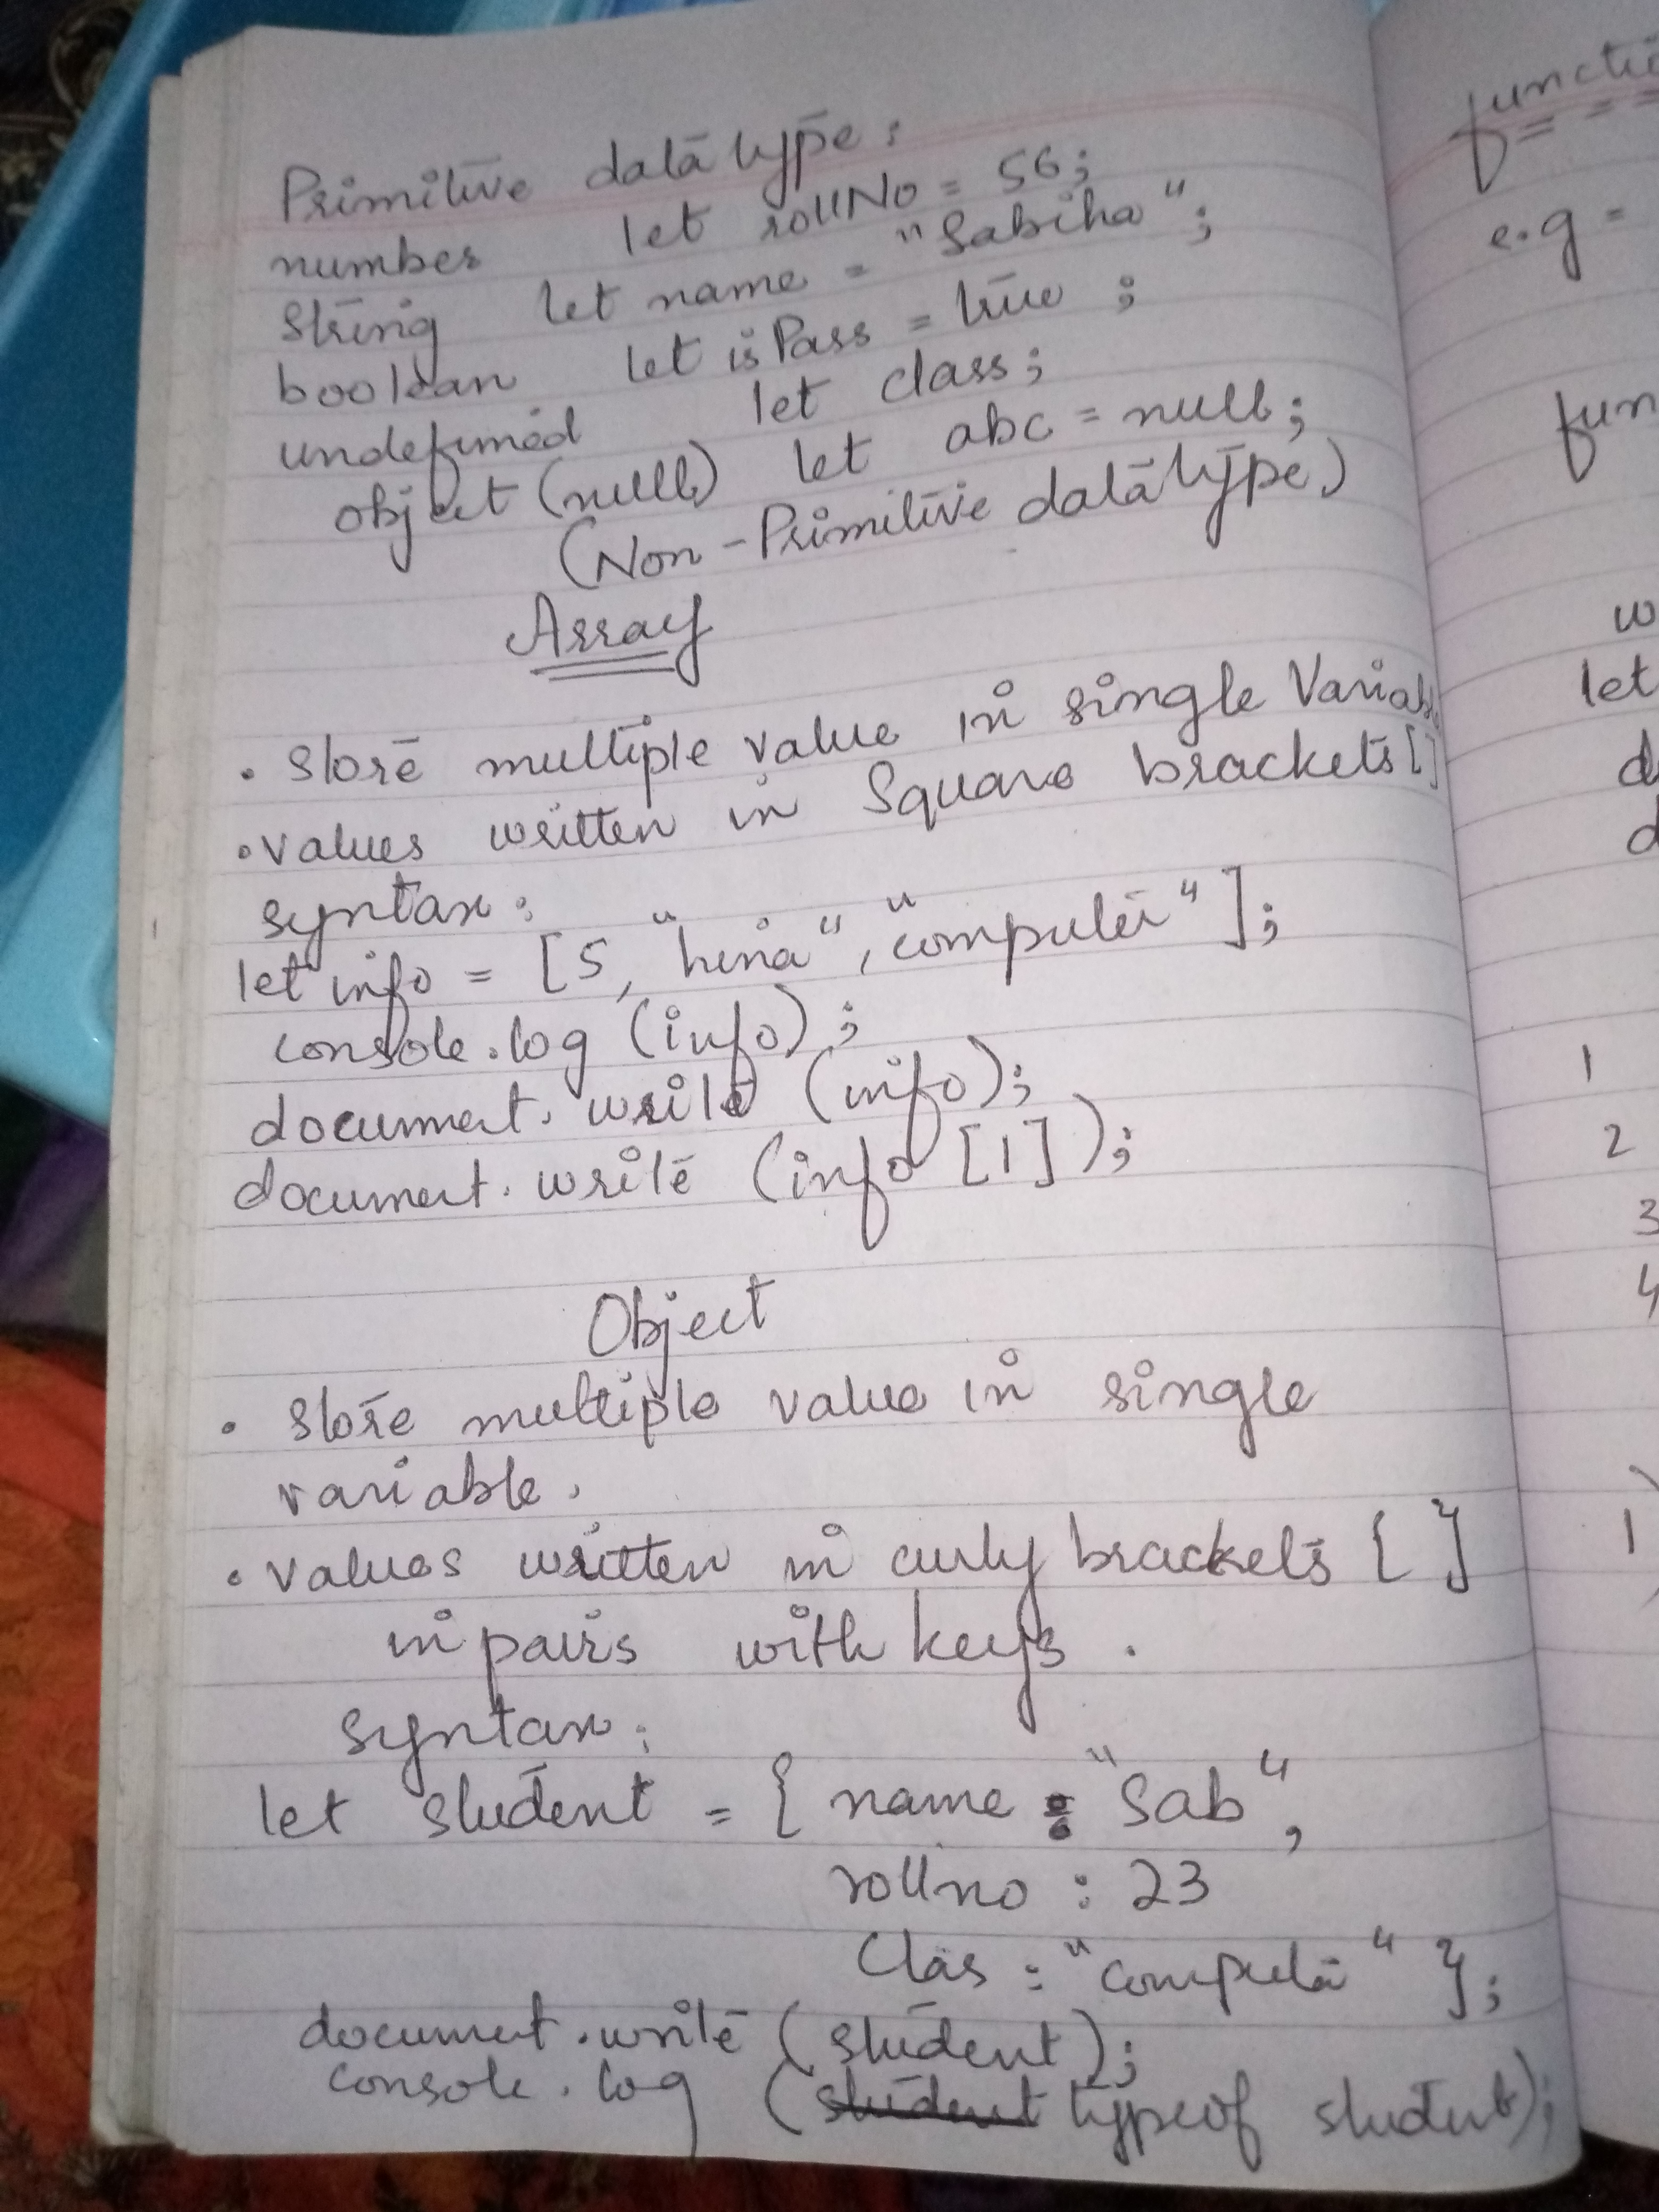 Primitive data type:
number let rollNo = 56;
string let name = "Sabiha";
boolean let isPass = true ;
undefined let class;
object (null) let abc = null;
(Non-Primitive data type)
Array
• store multiple value in single Variab
• values written in Square brackets []
syntax:
let info = [5, "hina", "computer"];
console.log (info);
document.write (info);
document.write (info [1]);
Object
• store multiple value in single
variable.
• values written in curly brackets { }
in pairs with keys .
syntax:
let student = { name : "Sab",
rollno : 23
Clas : "computer" };
document.write (student);
console.log (student typeof student);
functi
e.g =
fun
w
let
d
d
1
2
3
4
1